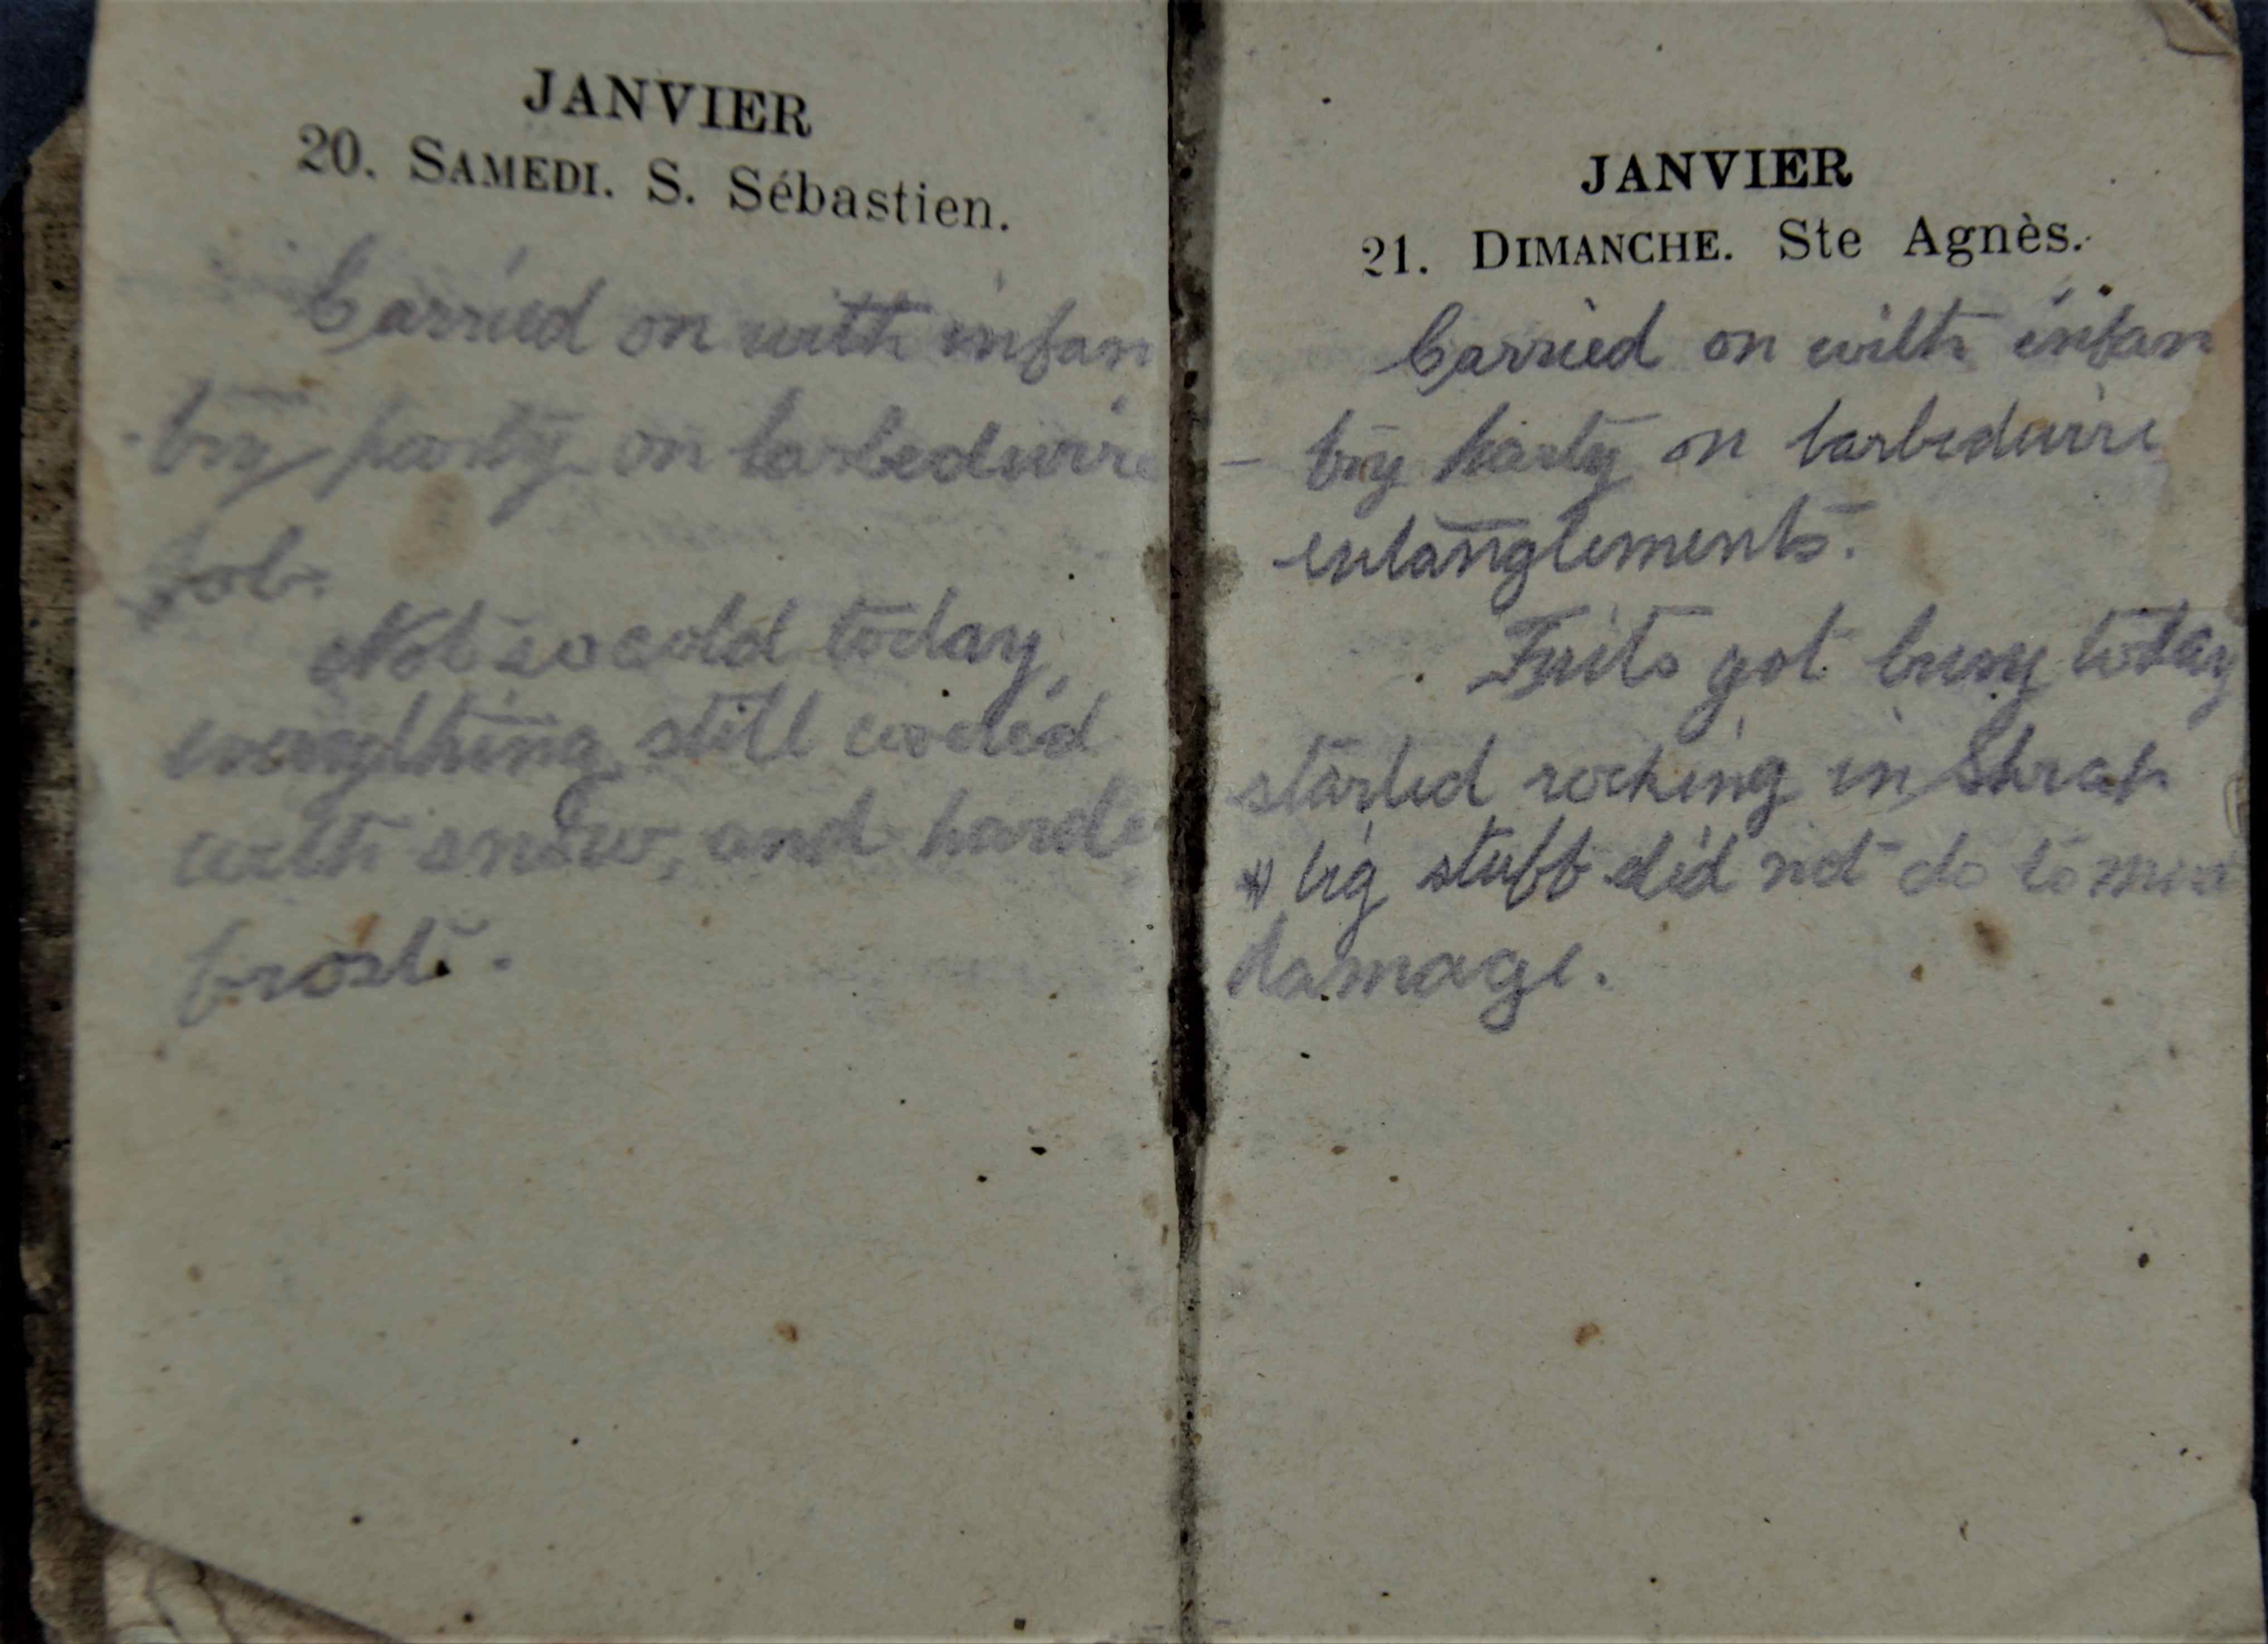 JANVIER
20. SAMEDI. S. Sébastien.
Carried on with infan
-try party on barbedwire
job.
Not so cold today,
everything still coverd
with snow, and hard
frost.
JANVIER
21. DIMANCHE. Ste Agnès.
Carried on with infan
- try party on barbedwire
entanglements.
Frits got busy today
started rocking in Shrap
& big stuff did not do to much
damage.